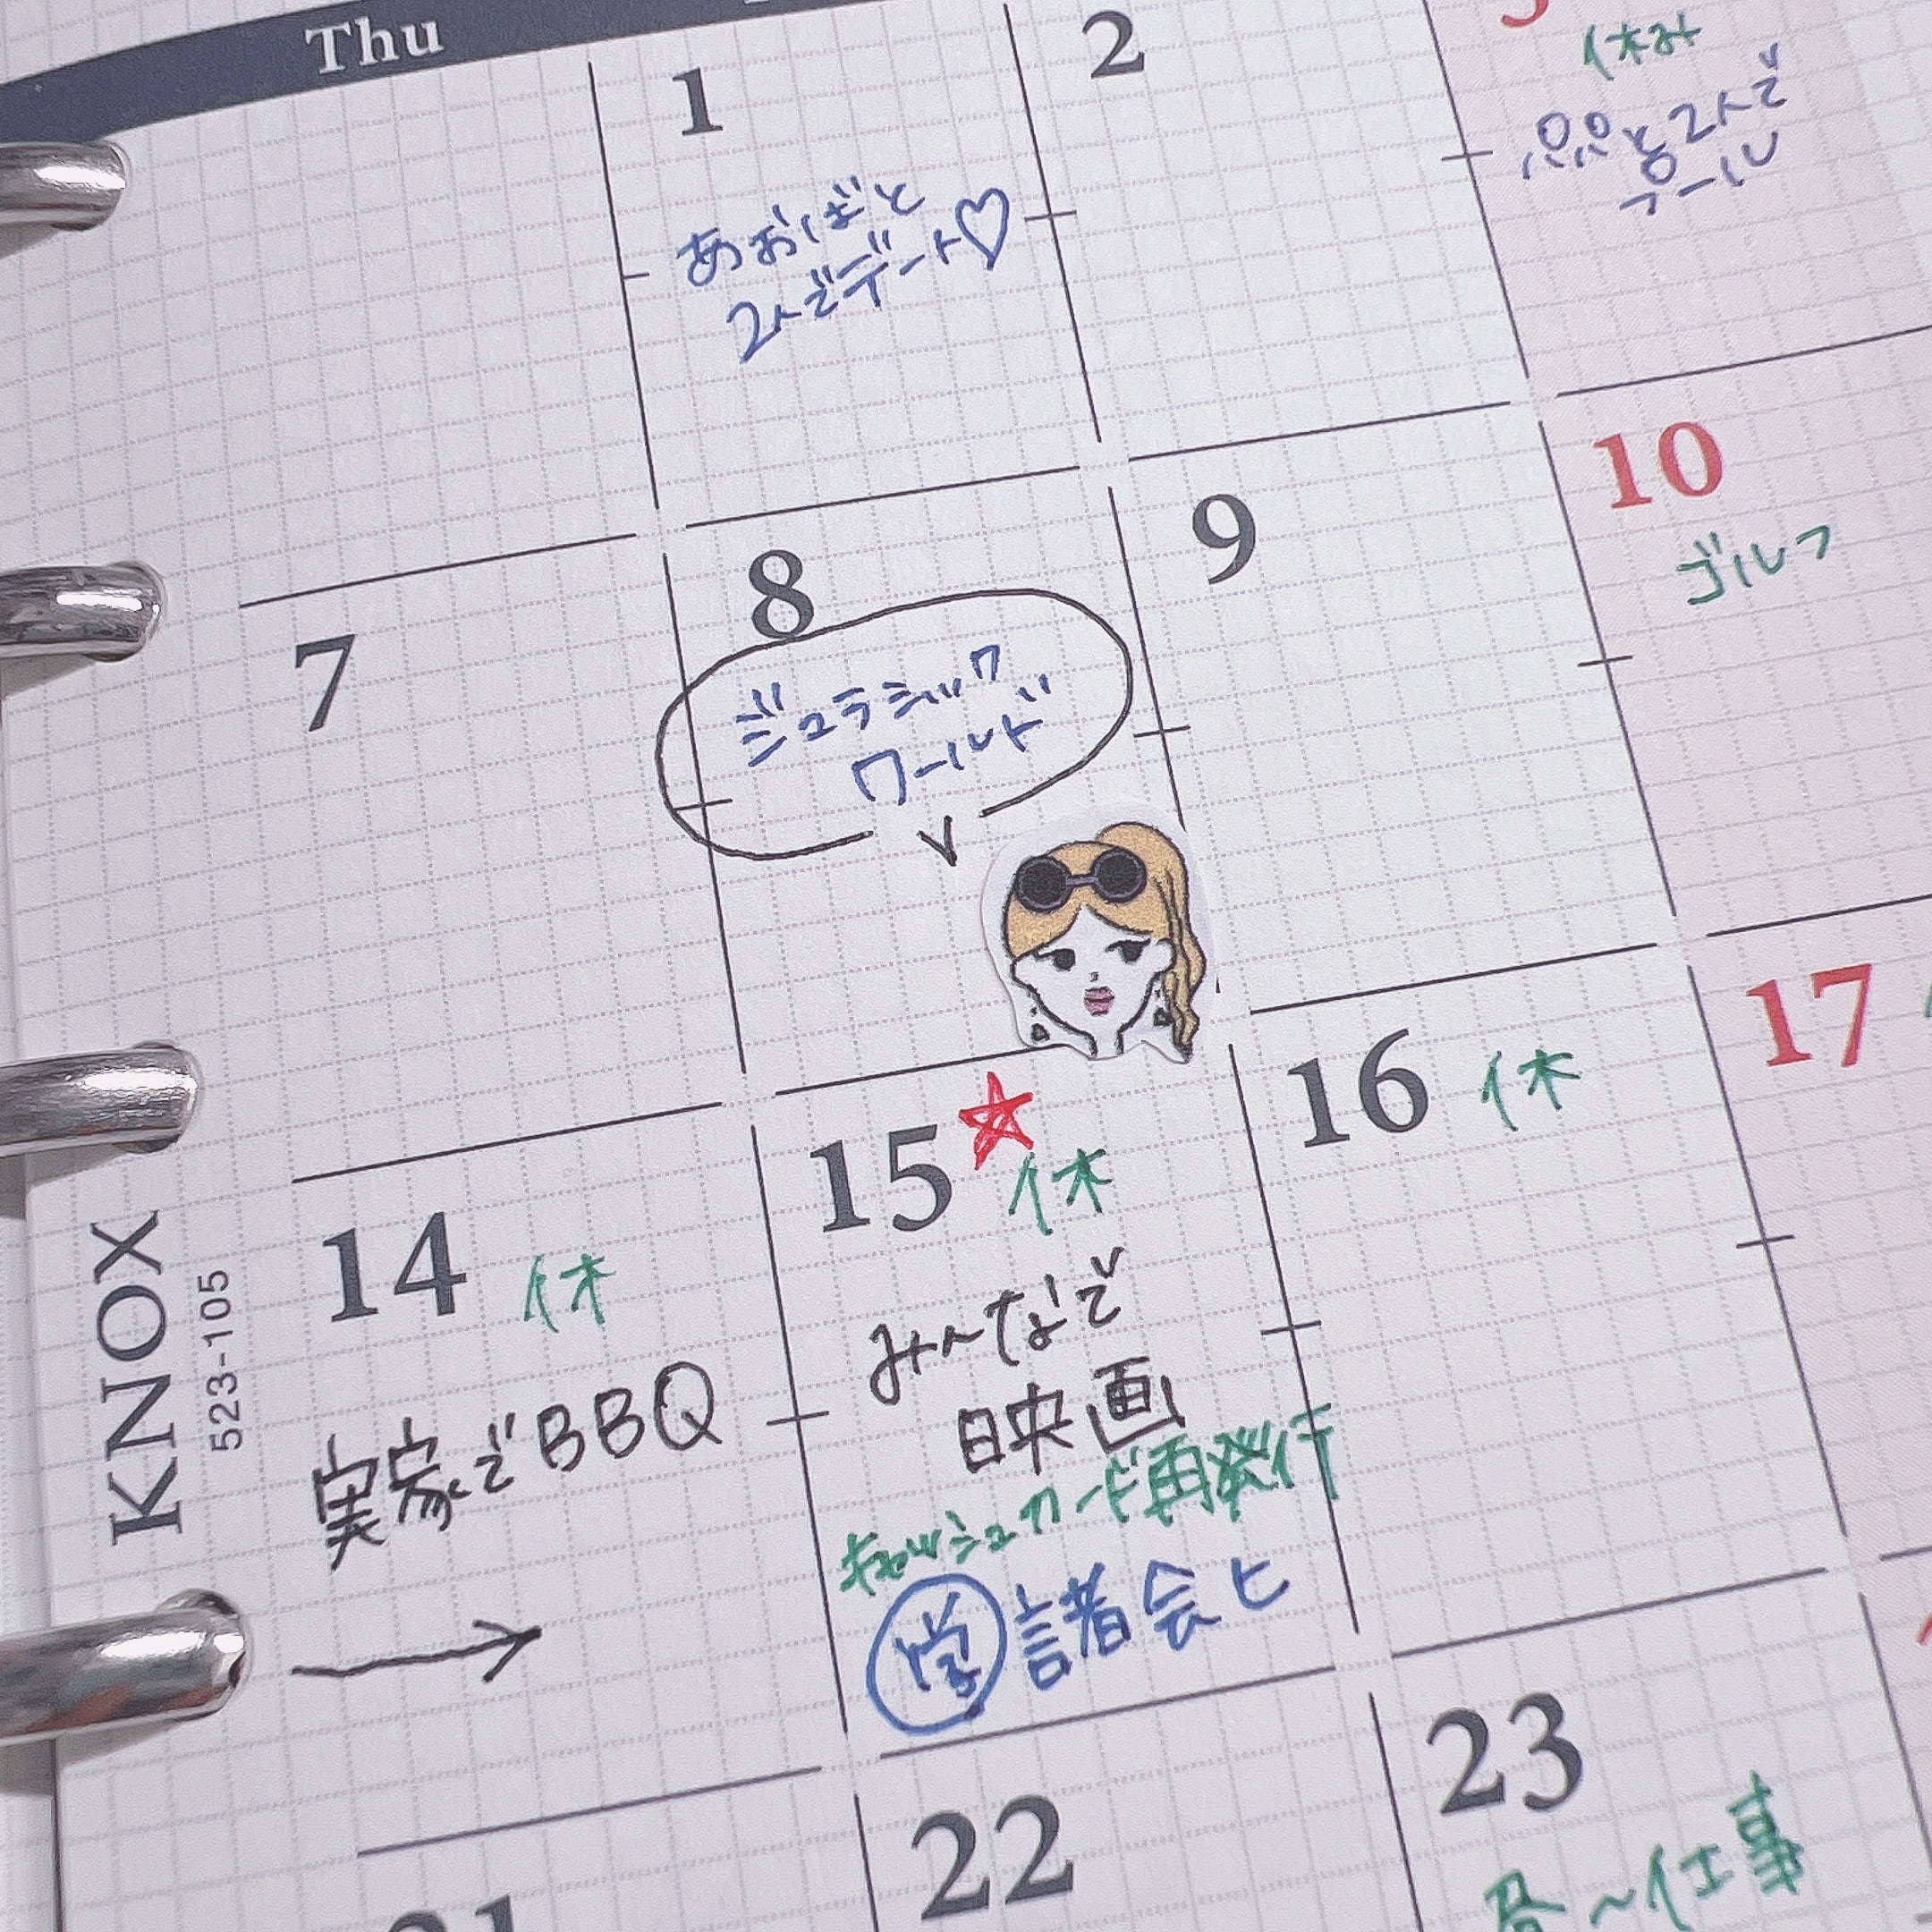 Thu
1
あおばと
2人でデート♡
2
休み
パパと2人で
プール
7
8
ジュラシック
ワールド
9
10
ゴルフ
14 休
実家でBBQ
→
15 休
みんなで
映画
キャッシュカード再発行
16 休
17
22
23
昼〜仕事
KNOX
523-105